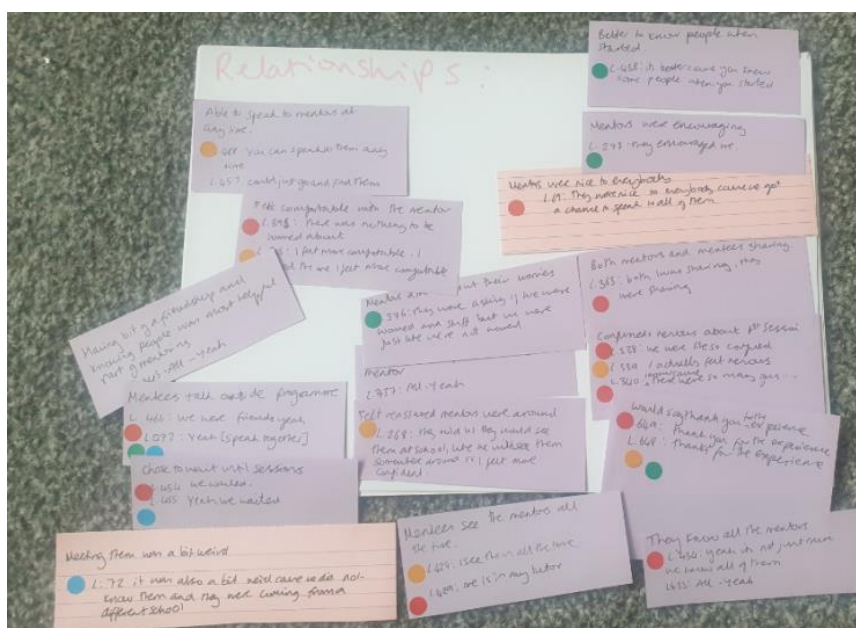 Relationships:
Better to know people when
started.
L.458: its better cause you knew
some people when you started
Able to speak to mentors at
any time.
488 You can speak to them any
time
L.457: could just go and find them
Mentors were encouraging
L.293: they encouraged me.
Mentors were nice to everybody
L.69: They were nice to everybody cause we got
a chance to speak to all of them
Felt comfortable with the mentor
there was nothing to be
worried about
I felt more comfortable, I
me I felt more comfortable
Both mentors and mentees sharing
L.363: both sharing, they
were sharing
Having bit of a friendship and
knowing people was most helpful
part of mentoring
All - yeah
Mentors their worries
346: they were asking if we were
worried and stuff but we were
just like we're not worried
nervous about 1st session
L.338: we were like so confused
L.339 I actually felt nervous
L.340 there were so many guys...
mentor
All - yeah
Mentees talk outside programme
L.461: we were friends yeah
L.077: Yeah [speak together]
Felt reassured mentors were around
L.268: they told us they would see
them at school, like we will see them
somewhere around so I felt more
confident
Would say thank you for the experience
649: Thank you for the experience
L.648: Thanks for the experience
Chose to wait until sessions
L.454 we waited.
L.455 Yeah we waited
Meeting them was a bit weird
L.72 it was also a bit weird cause we do not
know them and they were coming from a
different school
Mentees see the mentors all
the time.
L.428: I see them all the time.
L.429: one is in my tutor
They know all the mentors
L.434: yeah its not just mine
we know all of them
All - Yeah